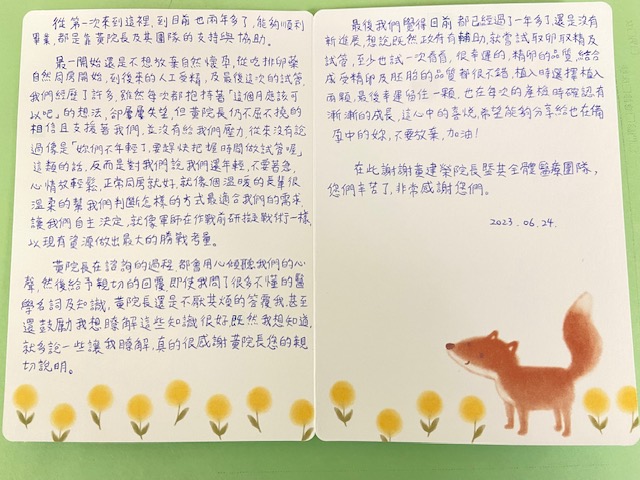 從第一次來到這裡,到目前也兩年多了,能夠順利
畢業,都是靠黃院長及其團隊的支持與協助。
最一開始還是不想放棄自然懷孕,從吃排卵藥
自然同房開始,到後來的人工受精,及最後這次的試管,
我們經歷了許多,雖然每次都抱持著「這個月應該可
以吧」的想法,卻屢屢失望,但黃院長仍不屈不撓的
相信且支援著我們,並沒有給我們壓力,從來沒有說
過像是「妳們不年輕了,要趕快把握時間做試管喔」
這類的話,反而是對我們說我們還年輕,不要著急,
心情放輕鬆,正常同房就好,就像個溫暖的長輩很
溫柔的幫我們判斷怎樣的方式最適合我們的需求,
讓我們自主決定,就像軍師在作戰前研擬戰術一樣,
以現有資源做出最大的勝戰考量。
黃院長在諮詢的過程,都會用心傾聽我們的心
聲,然後給予親切的回覆,即使我問了很多不懂的醫
學名詞及知識,黃院長還是不厭其煩的答覆我,甚至
還鼓勵我想瞭解這些知識很好,既然我想知道,
就多說一些讓我瞭解,真的很感謝黃院長您的親
切說明。
最後我們覺得目前都已經過了一年多了,還是沒有
新進展,想說既然政府有輔助,就嘗試取卵取精及
試管,至少也試一次看看,很幸運的,精卵的品質,結合
成受精卵及胚胎的品質都很不錯,植入時選擇植入
兩顆,最後幸運留住一顆,也在每次的產檢時確認有
漸漸的成長,這心中的喜悅,希望能夠分享給也在備
孕中的妳,不要放棄,加油!
在此謝謝黃建榮院長暨其全體醫療團隊,
您們辛苦了,非常感謝您們。
2023.06.24.